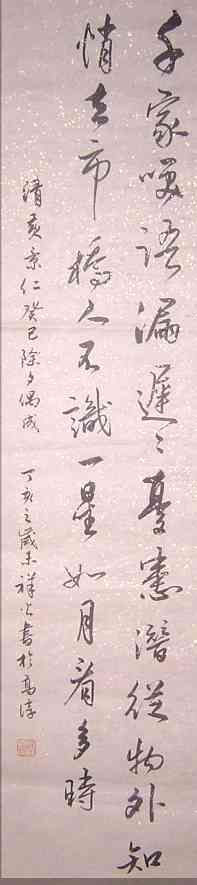 千家咲語漏遲遲憂患潛從物外知
悄立市橋人不識一星如月看多時
清黄景仁癸巳除夕偶成
丁亥之歲末祥書於高淳